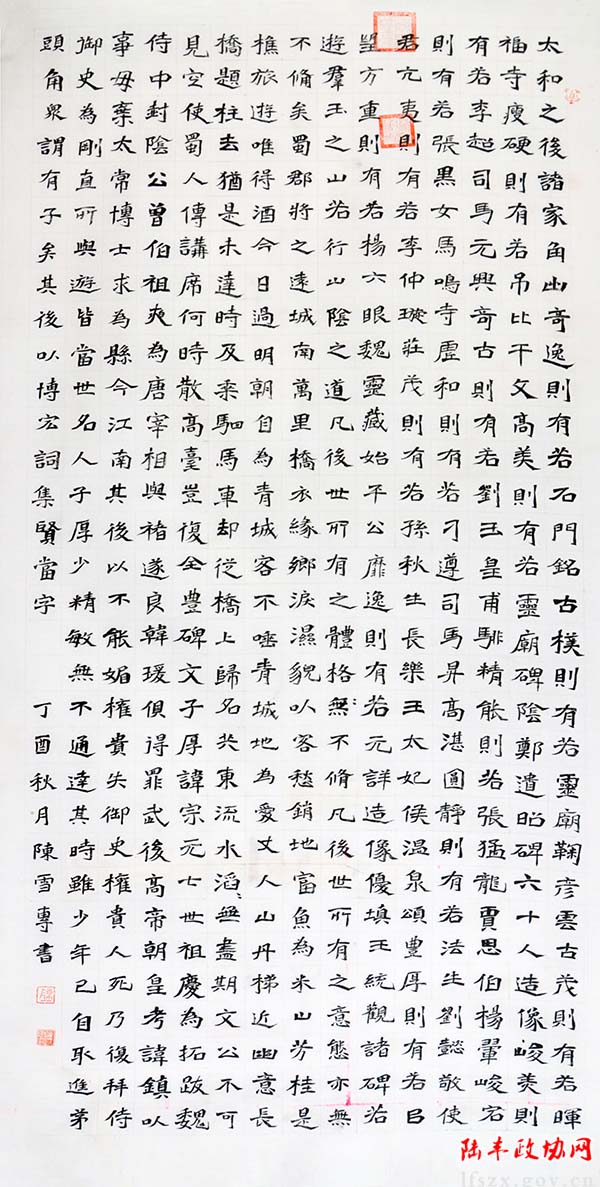 太和之後諸家角出奇逸則有若石門銘古樸則有若靈廟鞠彦雲古茂則有若暉
福寺瘦硬則有若吊比干文高美則有若靈廟碑陰鄭道昭碑六十人造像峻美則
有若李超司馬元興奇古則有若劉玉皇甫驎精能則若張猛龍賈思伯楊翬峻宕
則有若張黑女馬鳴寺虛和則有若刁遵司馬昇高湛圓靜則有若法生劉懿敬使
君亢夷則有若李仲璇莊茂則有若孫秋生長樂王太妃侯温泉頌豊厚則有若吕
望方重則有若楊大眼魏靈藏始平公靡逸則有若元詳造像優填王統觀諸碑若
遊羣玉之山若行山陰之道凡後世所有之體格無不脩凡後世所有之意態亦無
不脩矣蜀郡將之遠城南萬里橋衣緣鄉淚濕貌以客愁銷地富魚為米山芳桂是
樵旅遊唯得酒今日過明朝自為青城客不唾青城地為愛丈人山丹梯近幽意長
橋題柱去猶是未達時及来駟馬車却從橋上歸名共東流水滔滔無盡期文公不可
見空使蜀人傳講席何時散高臺豈復全豊碑文子厚諱宗元七世祖慶為拓跋魏
侍中封陰公曾伯祖奭為唐宰相與褚遂良韓瑗俱得罪武後高帝朝皇考諱鎮以
事母棄太常博士求為縣令江南其後以不能媚權貴失御史權貴人死乃復拜侍
御史為剛直所與遊皆當世名人子厚少精敏無不通達其時雖少年已自取進第
頭角衆謂有子矣其後以博宏詞集賢當字 丁酉秋月陳雪專書
陆丰政协网
lfszx.gov.cn